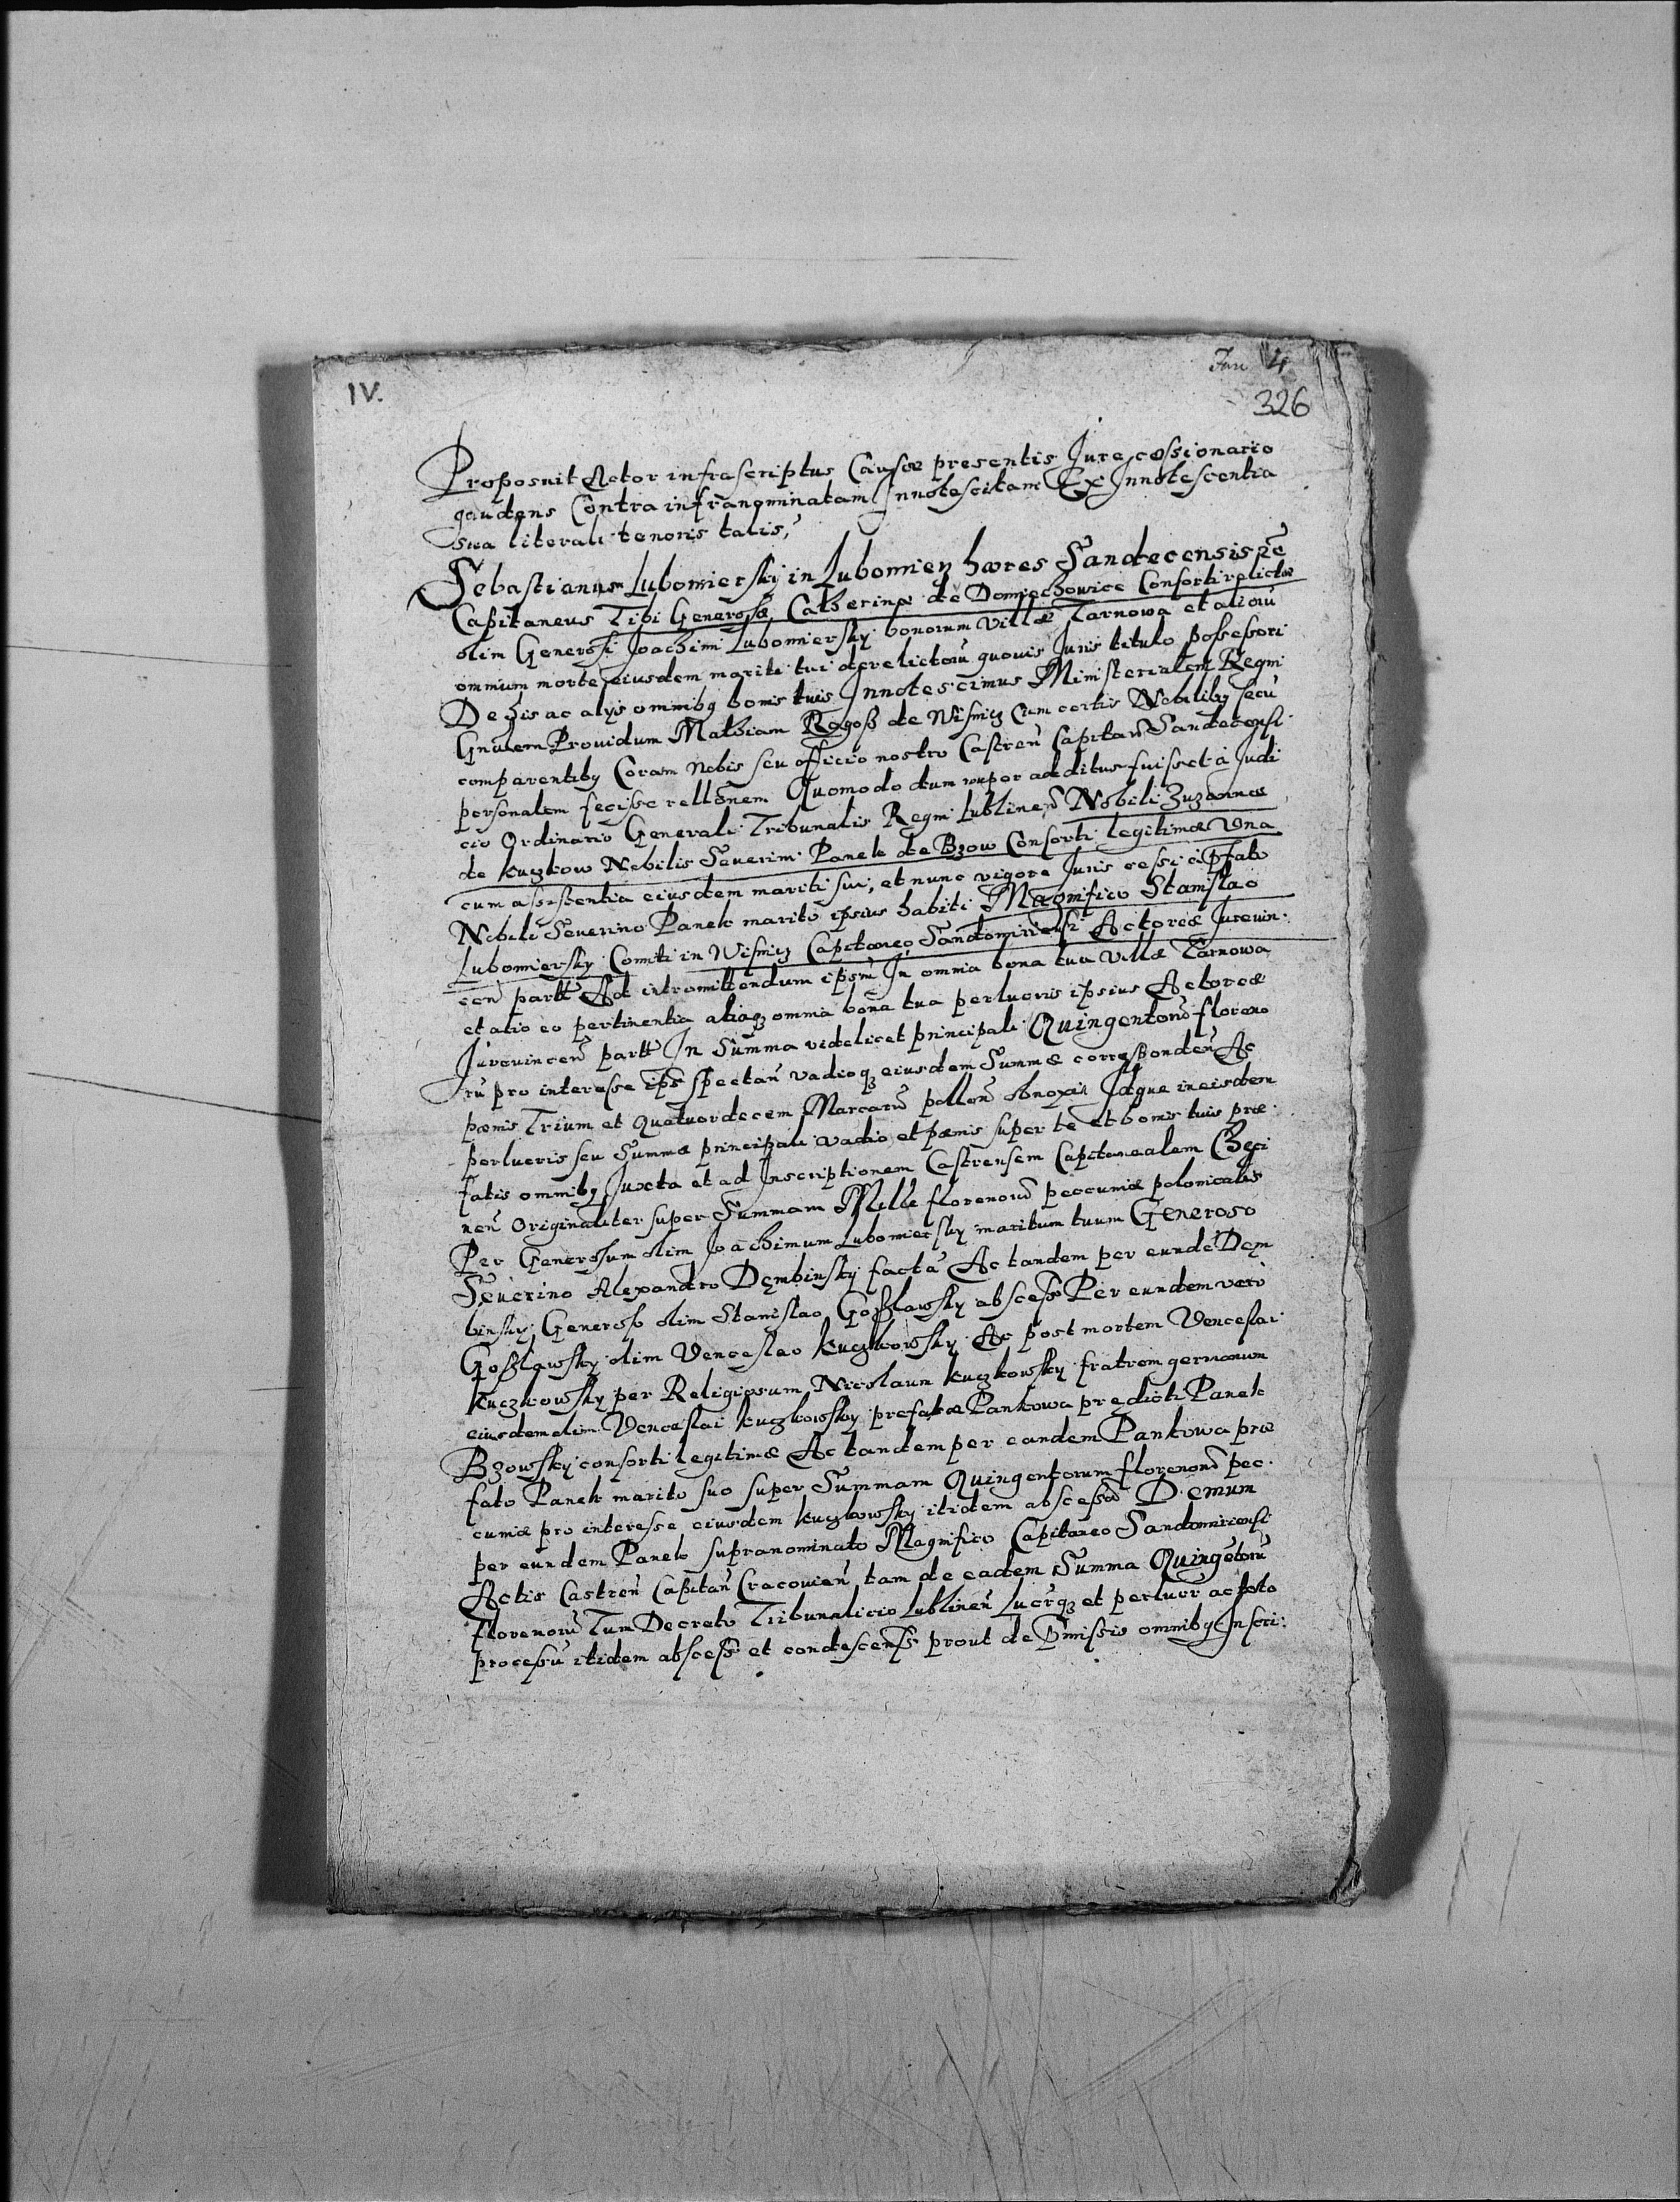 IV.
Jan 4
326
Proposuit Actor infrascriptus Causæ presentis Jure cessionario
gaudens Contra infranominatam Innotescitam Ex Innotescentia
sua literali tenoris talis,
Sebastianus Lubomiersky in Lubomierz hæres Sandecensis etc̃
Capitaneus Tibi Generosæ Catherinæ de Domiechowice Consorti relictæ
olim Generosi Joachimi Lubomiersky bonorum villæ Tarnowa et aliorũ
omnium morte eiusdem mariti tui derelictorũ quovis Juris titulo possessori
De his ac alys omnibq bonis tuis Innotescimus Ministerialem Regni
Gnälem Providum Mathiam Rogoß de Wisnicz Cum certis Nobilibq secũ
comparentibq Coram Nobis seu officio nostro Castreñ Capitañ Sandecensi
personalem fecisse relłonem Quomodo dum nuper additus fuisset à Judi
cio Ordinario Generali Tribunalis Regni Lublineñ Nobili Zuzannæ
de Kuczkow Nobilis Severini Panek de Bzow Consorti legitimæ Una
cum assistentia eiusdem mariti sui, et nunc vigore Juris cessi à p̃fato
Nobili Severino Panek marito ipsius habiti Magnifico Stanislao
Lubomiersky Comiti in Wisnicz Capitaneo Sandomiriensi Actoreæ Jurevin-
ceñ partt Ad intromittendum ipsm̃ In omnia bona tua villæ Tarnowa
et alio eo pertinentia aliaqz omnia bona tua perlucris ipsius Actoreæ
Jurevinceñ partt In Summa videlicet principali Quingentorũ floreno
rũ pro interesse ips̃ spectañ vadioqz eiusdem Summæ correspondeñ Ac
pænis Trium et Quatuordecem Marcarũ polloñ obnoxia Idque in eisdem
perlucris seu Summæ principali vadio et pænis super te et bonis tuis præ-
fatis omnibq Juxta et ad Inscriptionem Castrensem Capitanealem Bieci
neñ Originaliter super Summam Mille florenorũ peccuniæ polonicalis
Per Generosum olim Joachimum Lubomiersky maritum tuum Generoso
Severino Alexandro Dębinsky factã Ac tandem per eundẽ Dęm
binsky Generoso olim Stanislao Goßlawsky abscess̃ Per eundem verò
Goßlawsky olim Venceslao Kuczkowsky Ac post mortem Venceslai
Kuczkowsky per Religiosum Nicolaum Kuczkowsky fratrem germanum
eiusdem olim Venceslai Kuczkowsky prefatæ Pankowa prędicti Panek
Bzowsky consorti legitimæ Ac tandem per eandem Pankowa præ
fato Panek marito suo super Summam Quingentorum florenorũ pec-
cuniæ pro interesse eiusdem Kuczkowsky itidem abscessã Demum
per eundem Panek supranominato Magnifico Capitaneo Sandomiriensi
Actis Castreñ Capitañ Cracovieñ tam de eadem Summa Quingẽtorũ
florenorũ Tum Decreto Tribunalicio Lublineñ Lucrqz et perlucr̃ ac toto
processu itidem abscess̃ et condescens̃ prout de p̃missis omnibq Inscri-